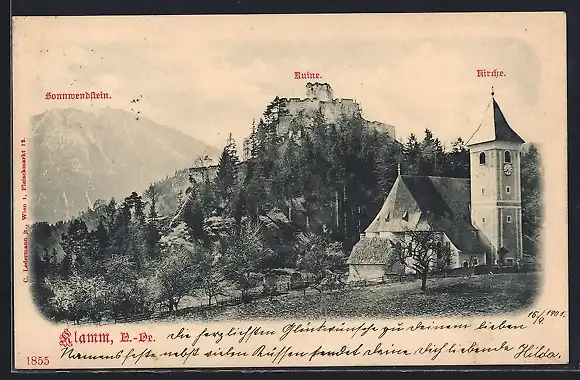 Ruine.
Kirche.
Sonnwendstein.
C. Ledermann jr., Wien I, Fleischmarkt 12.
16/9. 1901.
Klamm, N.-Oe. die herzlichsten Glückwünsche zu deinem lieben
Namensfeste nebst vielen Küssen sendet deine dich liebende Hilda.
1855